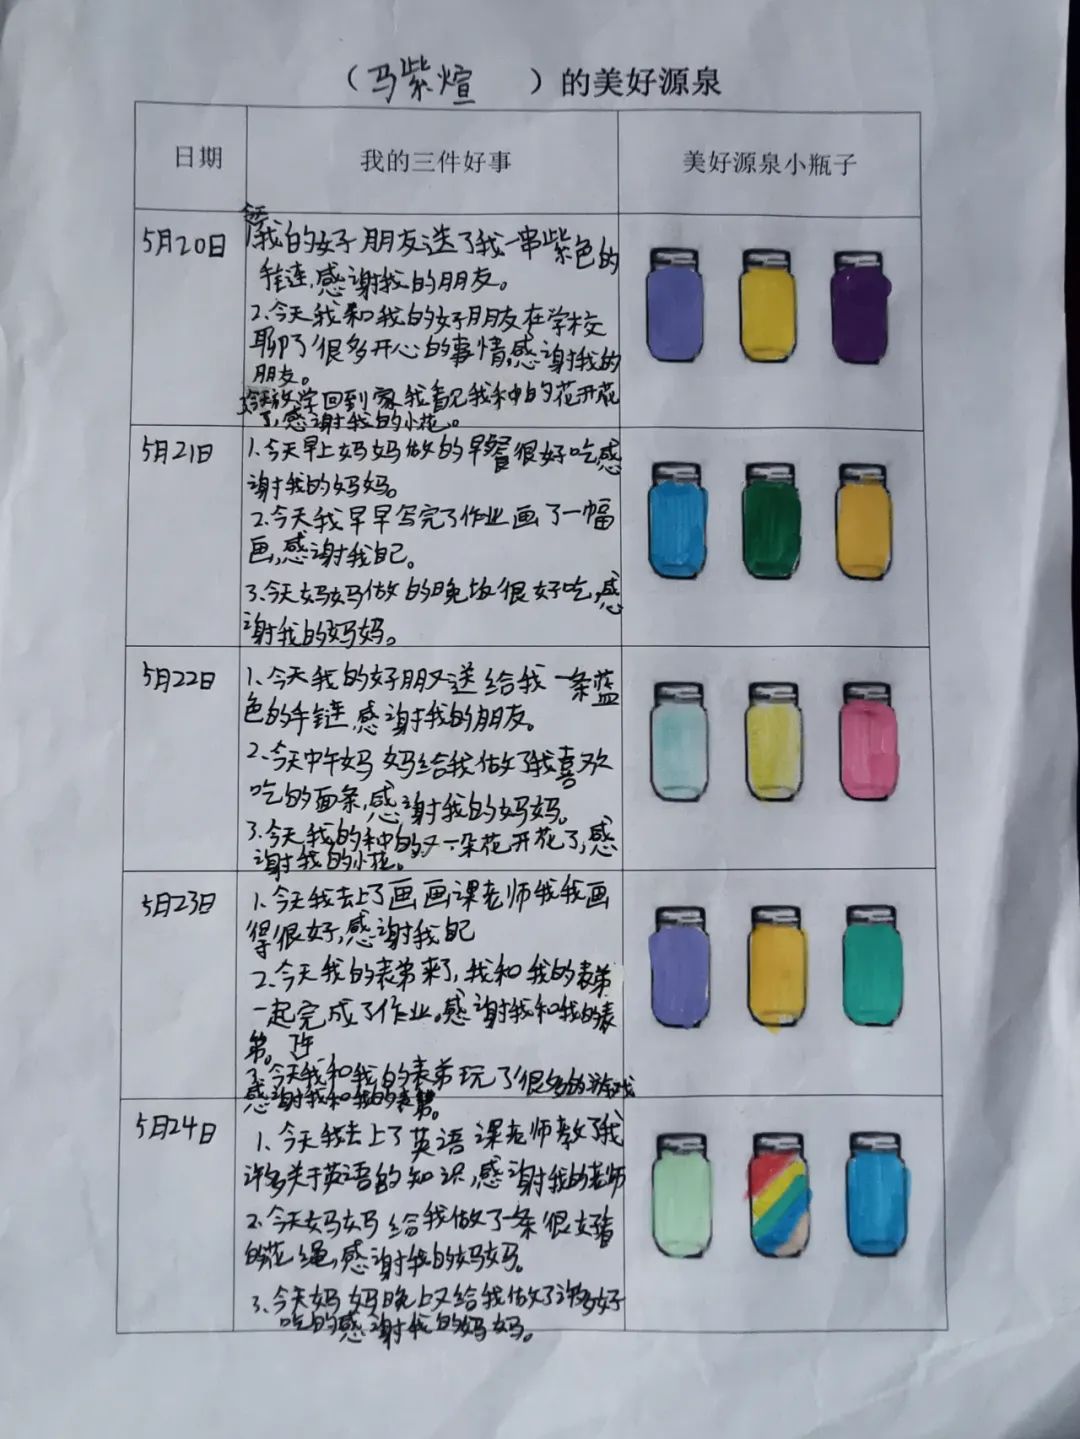 （马紫煊 ）的美好源泉
日期 我的三件好事 美好源泉小瓶子
5月20日
今天
1我的好朋友送了我一串紫色的
手连,感谢我的朋友。
2.今天我和我的好朋友在学校
聊了很多开心的事情,感谢我的
朋友。
3今天放学回到家我看见我种的花开花
了,感谢我的小花。
5月21日
1.今天早上妈妈做的早餐很好吃感
谢我的妈妈。
2.今天我早早写完了作业画了一幅
画,感谢我自己。
3.今天妈妈做的晚饭很好吃,感
谢我的妈妈。
5月22日
1、今天我的好朋又送给我一条蓝
色的手链,感谢我的朋友。
2、今天中午妈妈给我做了我喜欢
吃的面条,感谢我的妈妈。
3.今天我的种的又一朵花开花了,感
谢我的小花。
5月23日
1、今天我去上了画画课老师我我画
得很好,感谢我自己
2.今天我的表弟来了,我和我的表弟
一起完成了作业。感谢我和我的表
弟。下午
3.今天我和我的表弟玩了很多的游戏
感谢我和我的表弟。
5月24日
1、今天我去上了英语课老师教了我
许多关于英语的知识,感谢我的老师
2.今天妈妈给我做了一条很好看
的花绳,感谢我的妈妈。
3、今天妈妈晚上又给我做了许多好
吃的感谢我的妈妈。